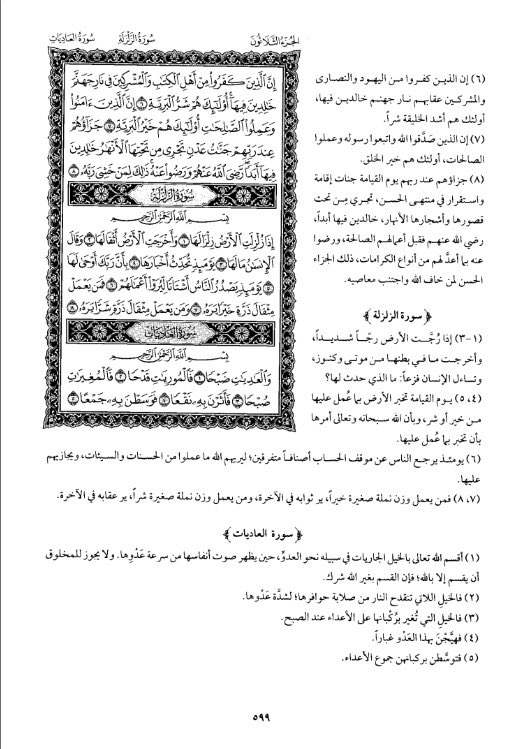 الجزء الثلاثون
سورة الزلزلة
سورة العاديات
إِنَّ الَّذِينَ كَفَرُوا مِنْ أَهْلِ الْكِتَٰبِ وَالْمُشْرِكِينَ فِي نَارِ جَهَنَّمَ
خَٰلِدِينَ فِيهَا أُوْلَٰئِكَ هُمْ شَرُّ الْبَرِيَّةِ ۝٦ إِنَّ الَّذِينَ ءَامَنُوا
وَعَمِلُوا الصَّٰلِحَٰتِ أُوْلَٰئِكَ هُمْ خَيْرُ الْبَرِيَّةِ ۝٧ جَزَاؤُهُمْ
عِندَ رَبِّهِمْ جَنَّٰتُ عَدْنٍ تَجْرِي مِن تَحْتِهَا الْأَنْهَٰرُ خَٰلِدِينَ
فِيهَا أَبَدًا رَّضِيَ اللَّهُ عَنْهُمْ وَرَضُوا عَنْهُ ذَٰلِكَ لِمَنْ خَشِيَ رَبَّهُ ۝٨
سُورَةُ الزَّلْزَلَةِ
بِسْمِ اللَّهِ الرَّحْمَٰنِ الرَّحِيمِ
إِذَا زُلْزِلَتِ الْأَرْضُ زِلْزَالَهَا ۝١ وَأَخْرَجَتِ الْأَرْضُ أَثْقَالَهَا ۝٢ وَقَالَ
الْإِنسَٰنُ مَا لَهَا ۝٣ يَوْمَئِذٍ تُحَدِّثُ أَخْبَارَهَا ۝٤ بِأَنَّ رَبَّكَ أَوْحَىٰ لَهَا
۝٥ يَوْمَئِذٍ يَصْدُرُ النَّاسُ أَشْتَاتًا لِّيُرَوْا أَعْمَٰلَهُمْ ۝٦ فَمَن يَعْمَلْ
مِثْقَالَ ذَرَّةٍ خَيْرًا يَرَهُ ۝٧ وَمَن يَعْمَلْ مِثْقَالَ ذَرَّةٍ شَرًّا يَرَهُ ۝٨
سُورَةُ الْعَادِيَاتِ
بِسْمِ اللَّهِ الرَّحْمَٰنِ الرَّحِيمِ
وَالْعَٰدِيَٰتِ ضَبْحًا ۝١ فَالْمُورِيَٰتِ قَدْحًا ۝٢ فَالْمُغِيرَٰتِ
صُبْحًا ۝٣ فَأَثَرْنَ بِهِ نَقْعًا ۝٤ فَوَسَطْنَ بِهِ جَمْعًا ۝٥
(٦) إن الذين كفروا من اليهود والنصارى
والمشركين عقابهم نار جهنم خالدين فيها،
أولئك هم أشد الخليقة شراً.
(٧) إن الذين صَدَّقوا الله واتبعوا رسوله وعملوا
الصالحات، أولئك هم خير الخلق.
(٨) جزاؤهم عند ربهم يوم القيامة جنات إقامة
واستقرار في منتهى الحسن، تجري من تحت
قصورها وأشجارها الأنهار، خالدين فيها أبداً،
رضي الله عنهم فقبل أعمالهم الصالحة، ورضوا
عنه بما أعدَّ لهم من أنواع الكرامات، ذلك الجزاء
الحسن لمن خاف الله واجتنب معاصيه.
﴿ سورة الزلزلة ﴾
(١-٣) إذا رُجَّت الأرض رجّاً شديداً،
وأخرجت ما في بطنها من موتى وكنوز،
وتساءل الإنسان فزعاً: ما الذي حدث لها؟
(٤، ٥) يوم القيامة تخبر الأرض بما عُمل عليها
من خير أو شر، وبأن الله سبحانه وتعالى أمرها
بأن تخبر بما عُمل عليها.
(٦) يومئذ يرجع الناس عن موقف الحساب أصنافاً متفرقين؛ ليريهم الله ما عملوا من الحسنات والسيئات، ويجازيهم
عليها.
(٧، ٨) فمن يعمل وزن نملة صغيرة خيراً، ير ثوابه في الآخرة، ومن يعمل وزن نملة صغيرة شراً، ير عقابه في الآخرة.
﴿ سورة العاديات ﴾
(١) أقسم الله تعالى بالخيل الجاريات في سبيله نحو العدوِّ، حين يظهر صوت أنفاسها من سرعة عَدْوِها. ولا يجوز للمخلوق
أن يقسم إلا بالله؛ فإن القسم بغير الله شرك.
(٢) فالخيل اللاتي تنقدح النار من صلابة حوافرها؛ لشدَّة عَدْوها.
(٣) فالخيل التي تُغير برُكْبانها على الأعداء عند الصبح.
(٤) فهيَّجْنَ بهذا العَدْو غباراً.
(٥) فتوسَّطن بركبانهن جموع الأعداء.
٥٩٩